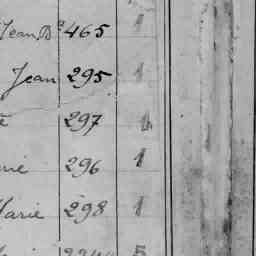 Jean Bte 465 1
Jean 295 1
297 1
296 1
Marie 298 1
5